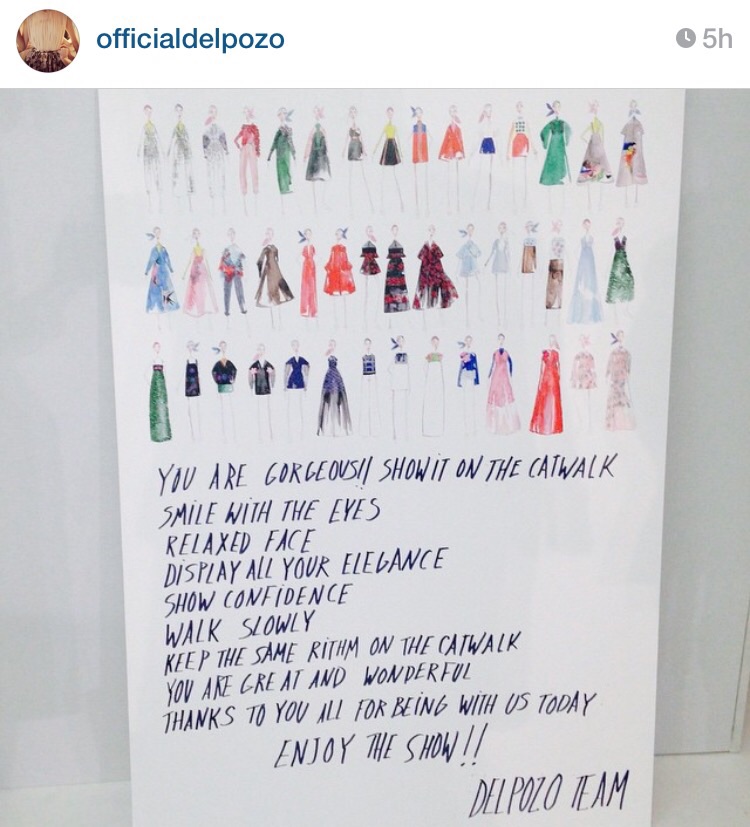 officialdelpozo
5h
YOU ARE GORGEOUS!! SHOW IT ON THE CATWALK
SMILE WITH THE EYES
RELAXED FACE
DISPLAY ALL YOUR ELEGANCE
SHOW CONFIDENCE
WALK SLOWLY
KEEP THE SAME RITHM ON THE CATWALK
YOU ARE GREAT AND WONDERFUL
THANKS TO YOU ALL FOR BEING WITH US TODAY
ENJOY THE SHOW!!
DELPOZO TEAM